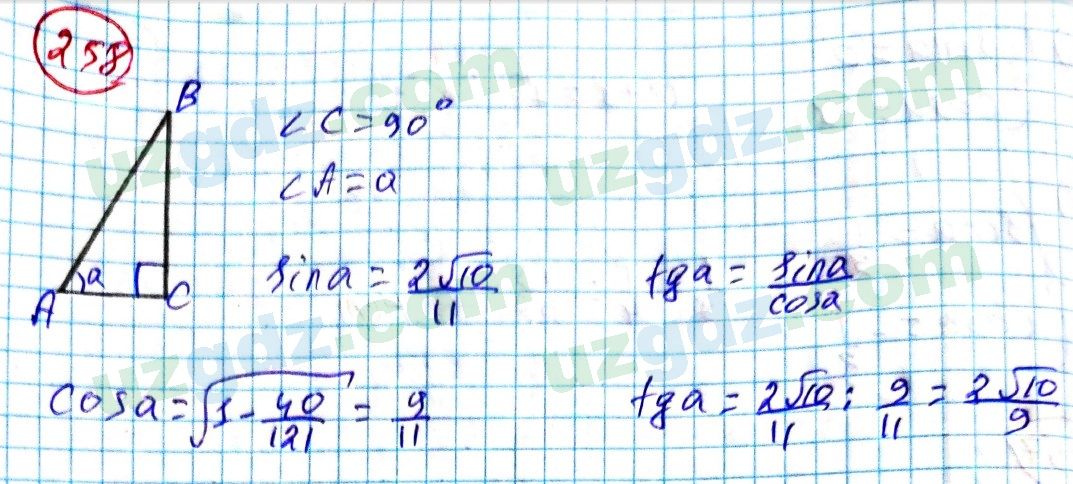 258
B
∠C=90°
∠A=a
A a C
sina = 2√10/11
tga = sina/cosa
cosa = √1-40/121 = 9/11
tga = 2√10/11 : 9/11 = 2√10/9
uzgdz.com
uzgdz.com
uzgdz.com
uzgdz.com